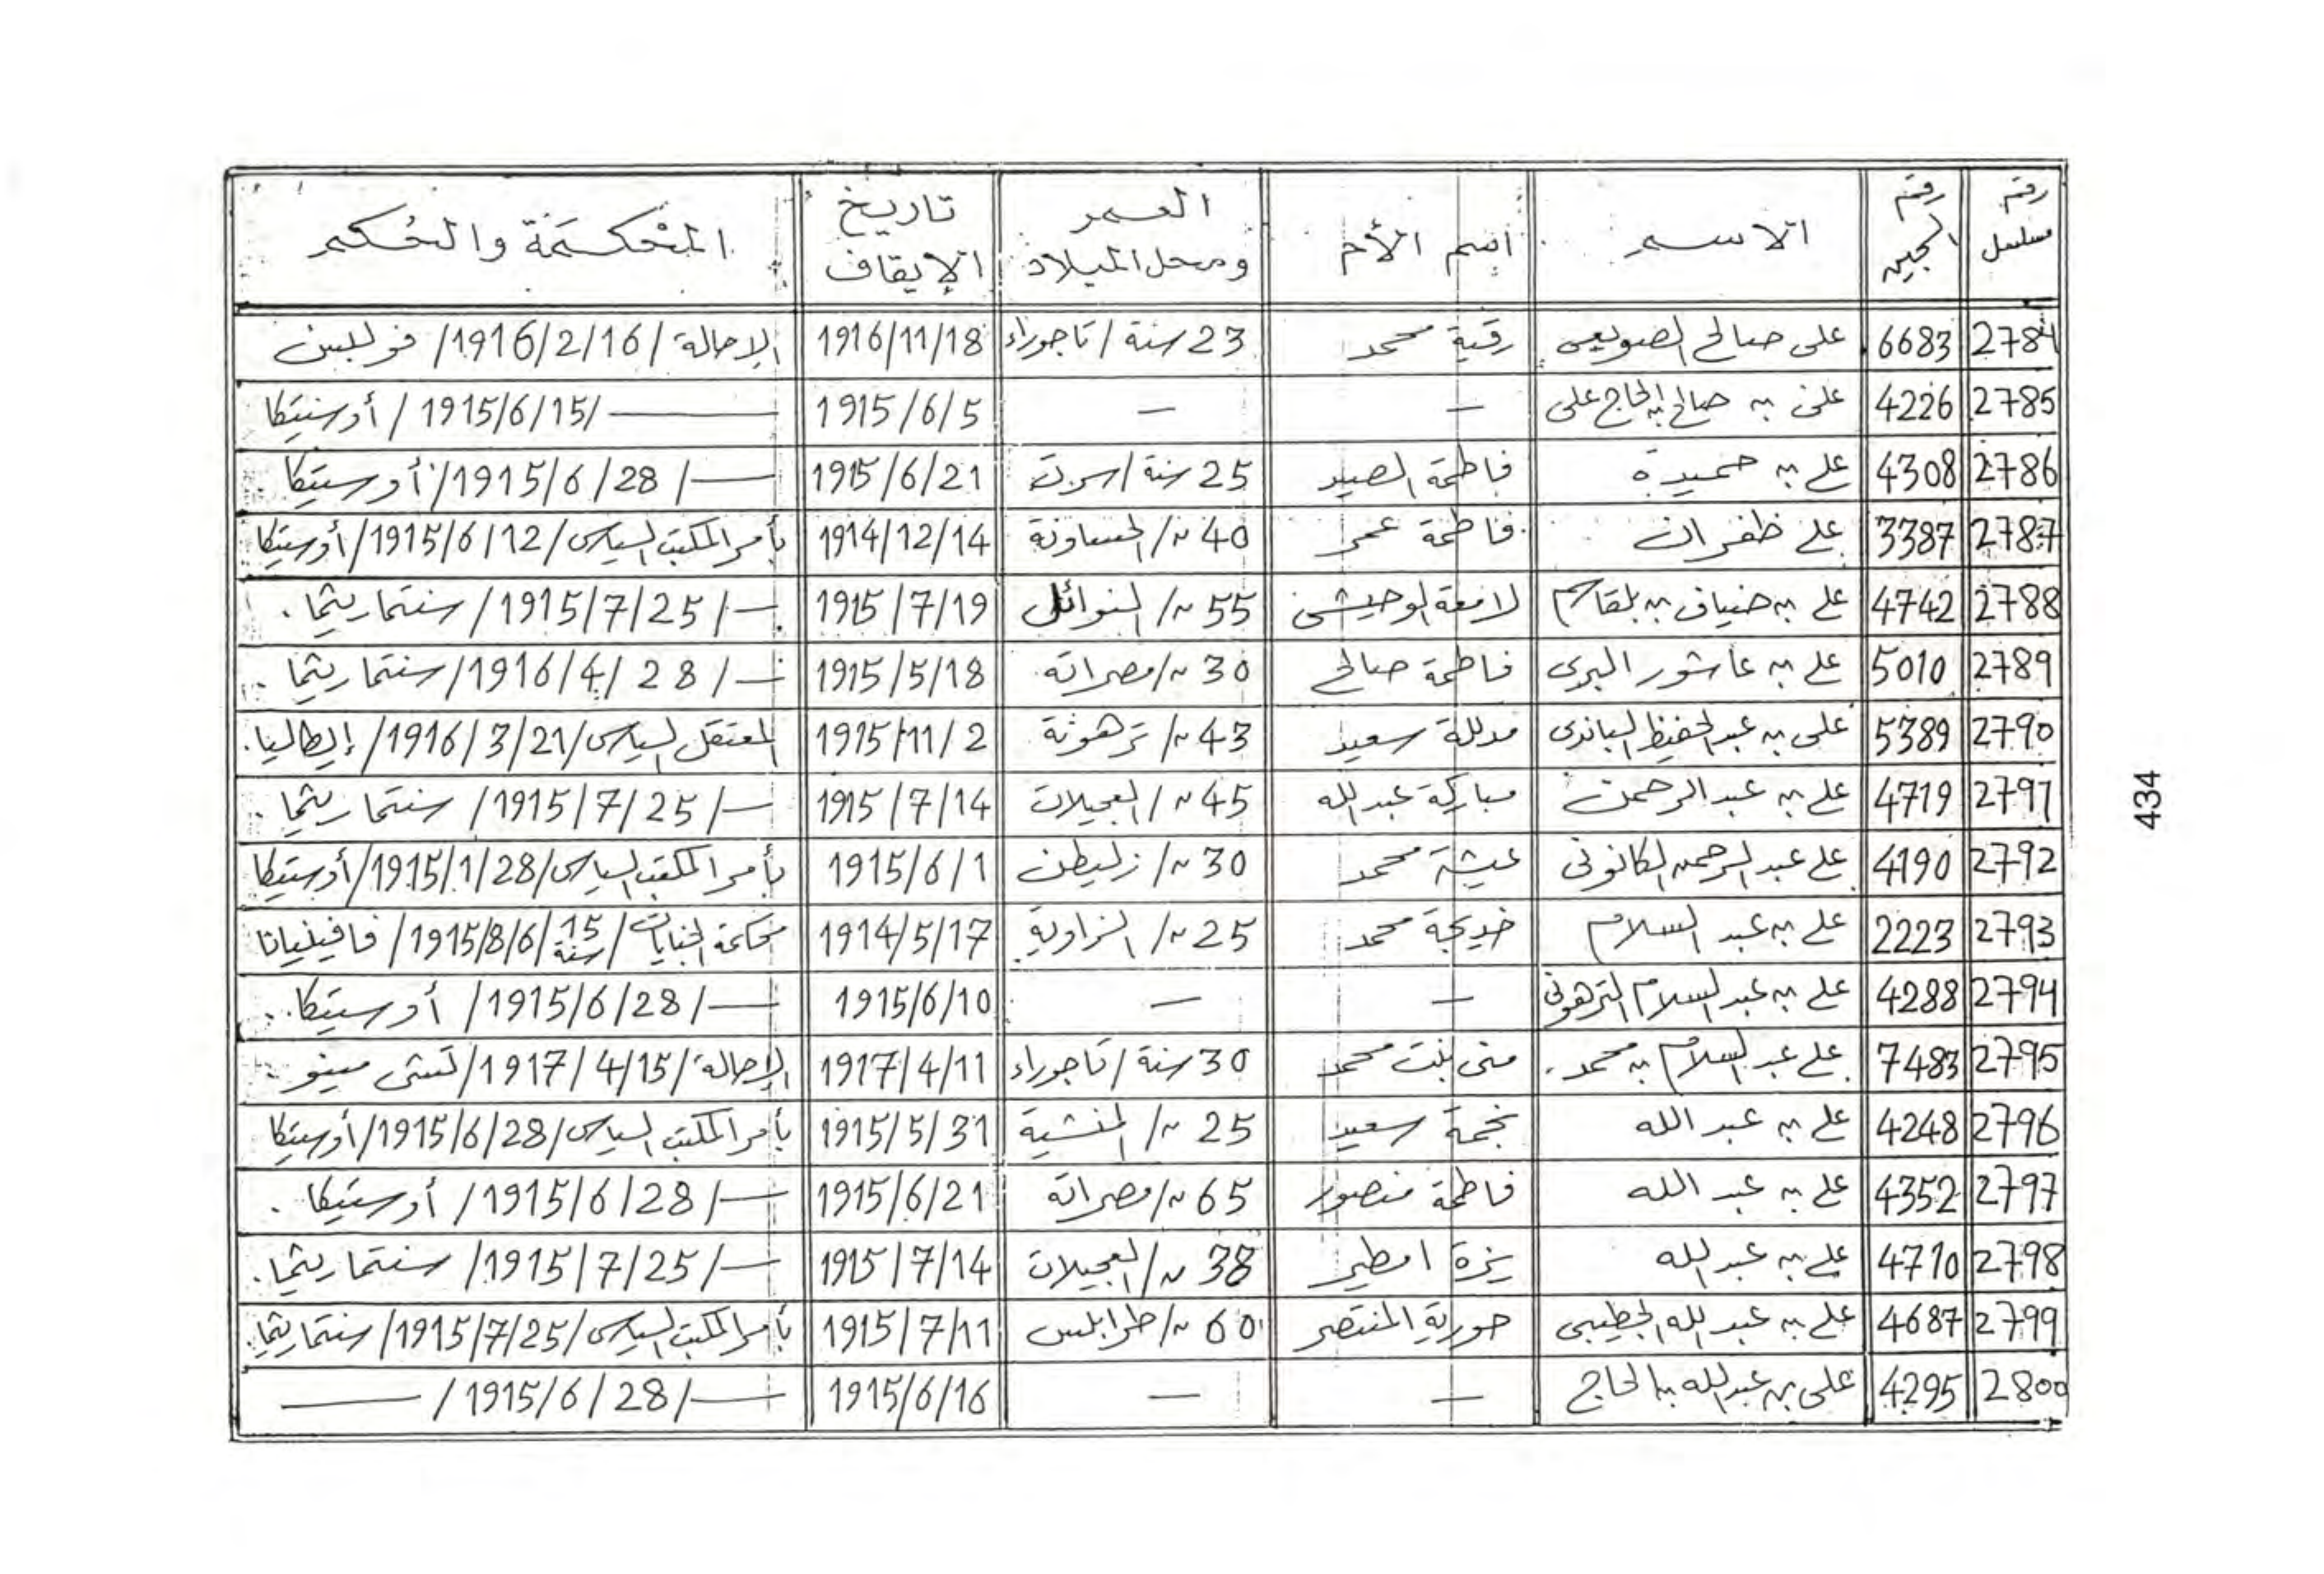 رقم مسلسل | رقم السجين | الاسم | اسم الأم | العمر ومحل الميلاد | تاريخ الإيقاف | المحكمة والحكم
2784 | 6683 | على صالح الصويعى | رقية محمد | 23 سنة / تاجوراء | 1916/11/18 | الإحالة / 1916/2/16 / فوللبس
2785 | 4226 | على بن صالح بن الحاج على | — | — | 1915/6/5 | — / 1915/6/15 / أوستيكا
2786 | 4308 | على بن حميدة | فاطمة الصيد | 25 سنة / سرت | 1915/6/21 | — / 1915/6/28 / أوستيكا
2787 | 3387 | على ظفران | فاطمة عمر | 40 " / الحساونة | 1914/12/14 | بأمر المكتب السياسى / 1915/6/12 / أوستيكا
2788 | 4742 | على بن ضياف بن بلقاسم | لامعة الوحيشى | 55 " / النوائل | 1915/7/19 | — / 1915/7/25 / سنتماريثما .
2789 | 5010 | على بن عاشور البرى | فاطمة صالح | 30 " / مصراته | 1915/5/18 | — / 1916/4/28 / سنتماريثما
2790 | 5389 | على بن عبد الحفيظ الباندى | مدللة سعيد | 43 " / ترهونة | 1915/11/2 | المعتقل السياسى / 1916/3/21 / إيطاليا .
2791 | 4719 | على بن عبد الرحمن | مباركة عبد الله | 45 " / العجيلات | 1915/7/14 | — / 1915/7/25 / سنتماريثما .
2792 | 4190 | على عبد الرحمن الكانونى | عيشة محمد | 30 " / زليطن | 1915/6/1 | بأمر المكتب السياسى / 1915/1/28 / أوستيكا
2793 | 2223 | على بن عبد السلام | خديجة محمد | 25 " / الزاوية | 1914/5/17 | محكمة الجنايات / 15 سنة / 1915/8/6 / فافينيانا
2794 | 4288 | على بن عبد السلام الترهونى | — | — | 1915/6/10 | — / 1915/6/28 / أوستيكا .
2795 | 7483 | على عبد السلام بن محمد . | منى بنت محمد | 30 سنة / تاجوراء | 1917/4/11 | الإحالة / 1917/4/15 / تشى مينو
2796 | 4248 | على بن عبد الله | نجمة سعيد | 25 " / المنشية | 1915/5/31 | بأمر المكتب السياسى / 1915/6/28 / أوستيكا
2797 | 4352 | على بن عبد الله | فاطمة منصور | 65 " / مصراته | 1915/6/21 | — / 1915/6/28 / أوستيكا .
2798 | 4710 | على بن عبد الله | يزة امطير | 38 " / العجيلات | 1915/7/14 | — / 1915/7/25 / سنتماريثما .
2799 | 4687 | على بن عبد الله الجطيبى | حورية المنتصر | 60 " / طرابلس | 1915/7/11 | بأمر المكتب السياسى / 1915/7/25 / سنتماريثما .
2800 | 4295 | على بن عبد الله بالحاج | — | — | 1915/6/16 | — / 1915/6/28 / —
434